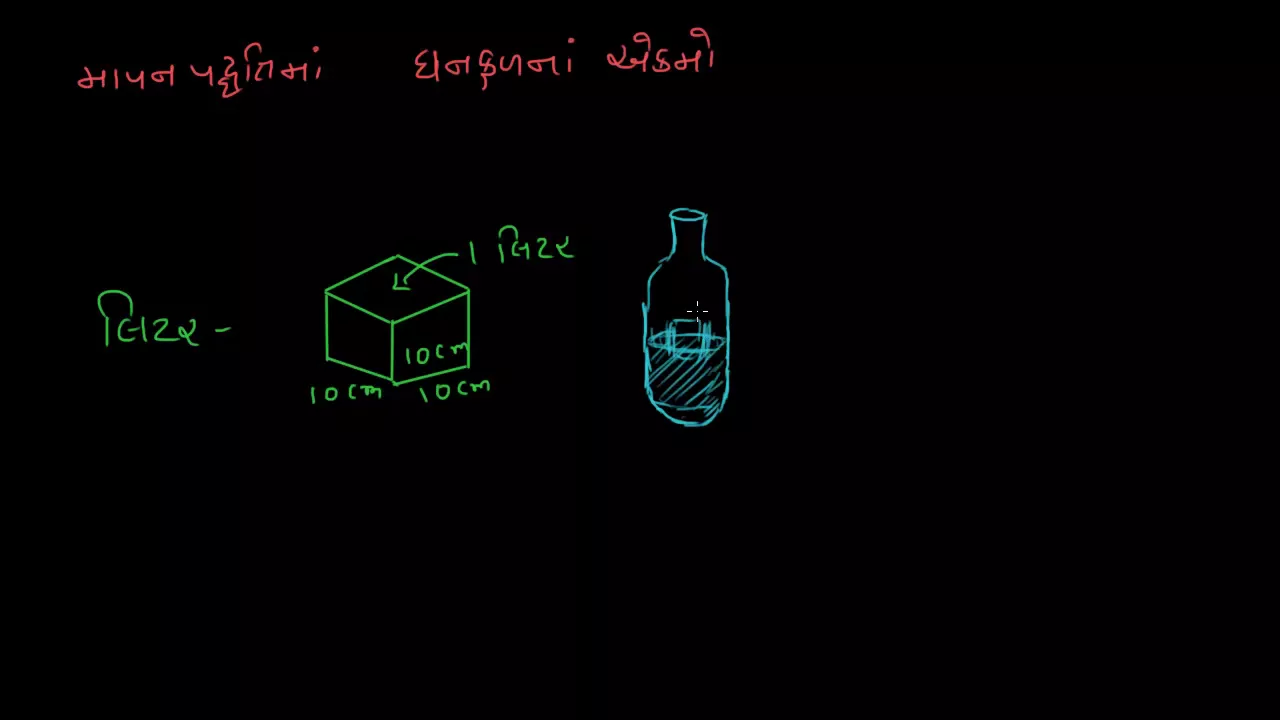 માપન પદ્ધતિમાં ઘનફળનાં એકમો
1 લિટર
લિટર -
10cm
10cm 10cm